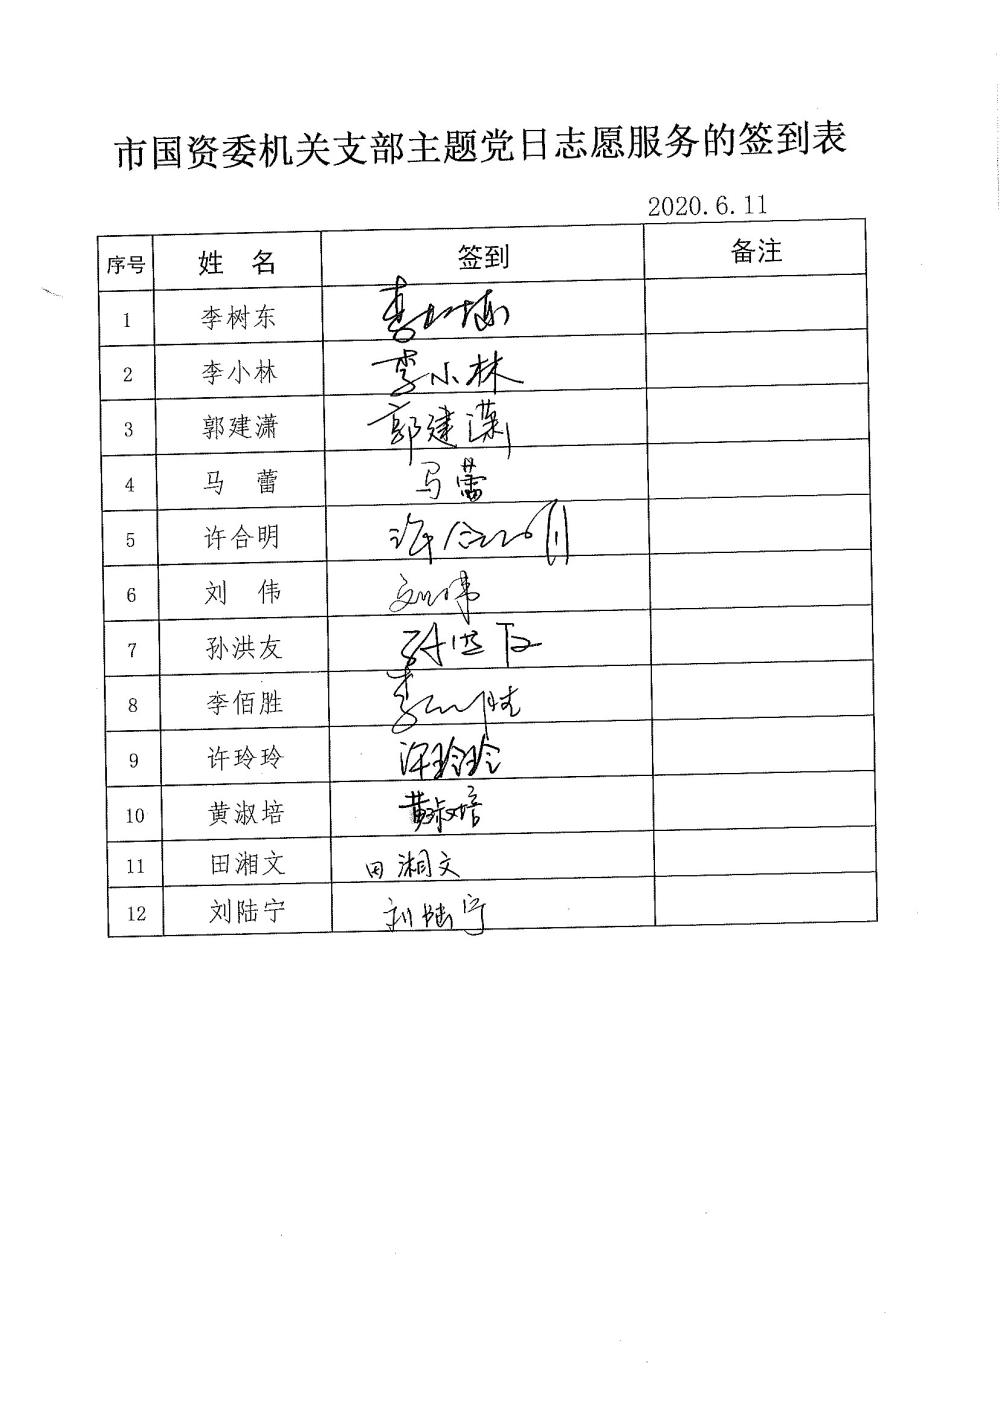 市国资委机关支部主题党日志愿服务的签到表
2020.6.11
序号 姓 名 签到 备注
1 李树东 李树东
2 李小林 李小林
3 郭建潇 郭建潇
4 马 蕾 马蕾
5 许合明 许合明
6 刘 伟 刘伟
7 孙洪友 孙洪友
8 李佰胜 李佰胜
9 许玲玲 许玲玲
10 黄淑培 黄淑培
11 田湘文 田湘文
12 刘陆宁 刘陆宁